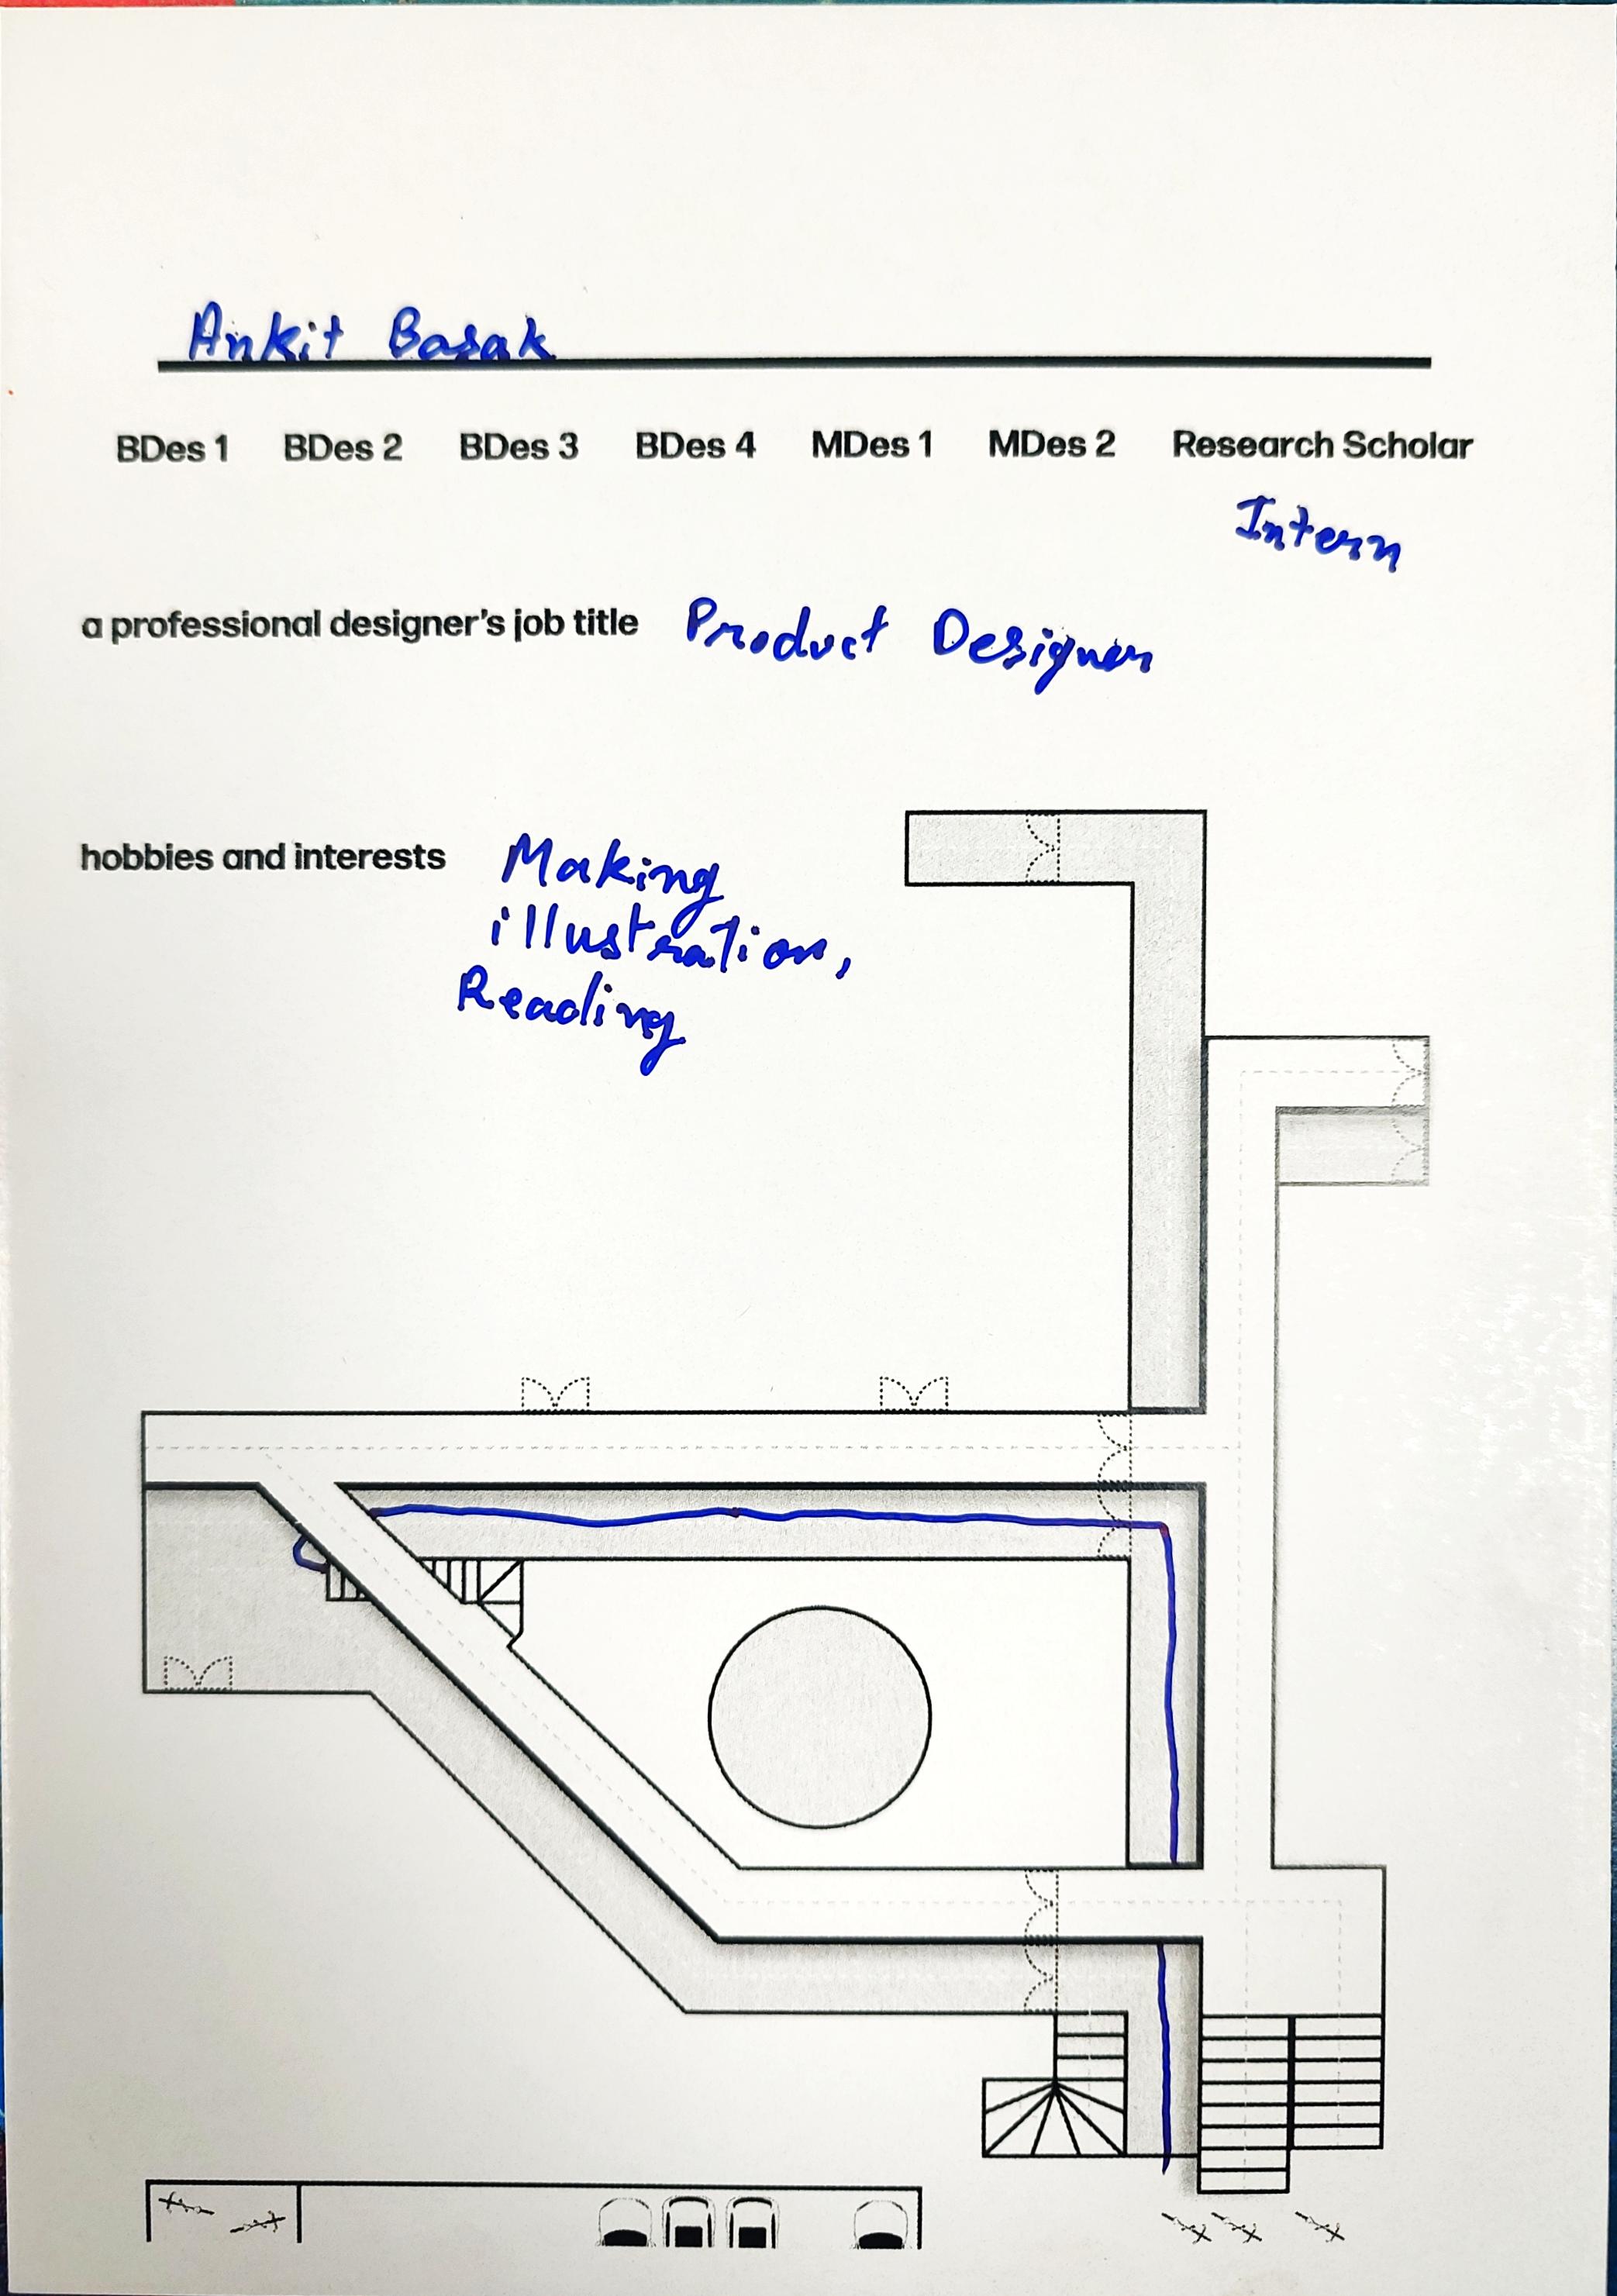 Ankit Basak
BDes 1 BDes 2 BDes 3 BDes 4 MDes 1 MDes 2 Research Scholar
Intern
a professional designer's job title Product Designer
hobbies and interests Making
illustration,
Reading